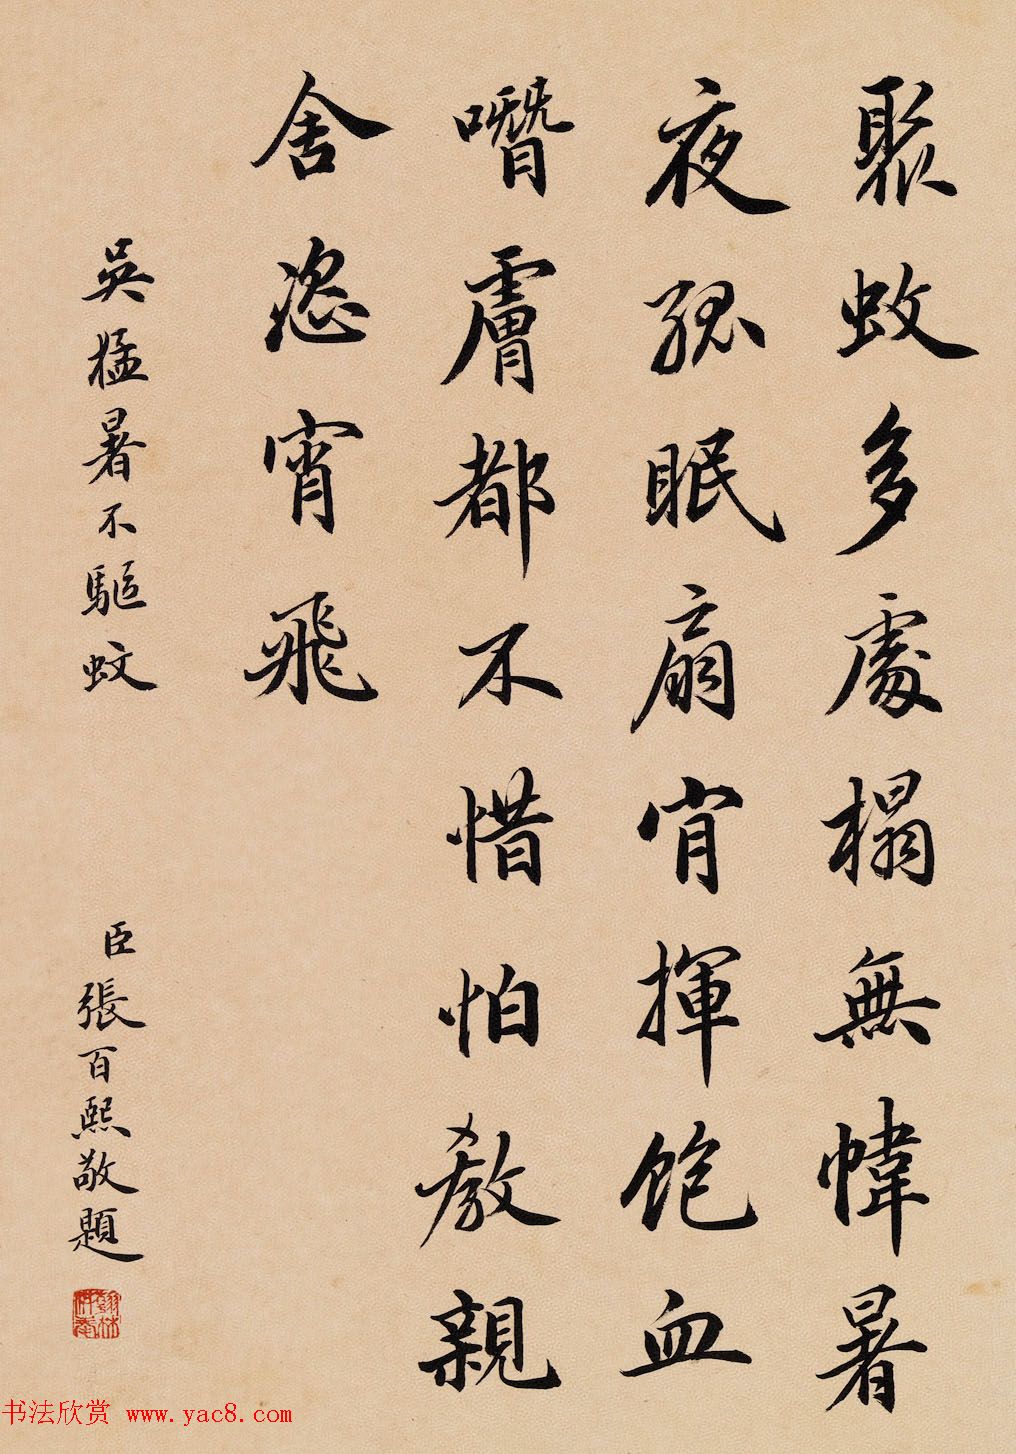 聚蚊多處榻無幃暑
夜孤眠扇肯揮飽血
噆膚都不惜怕教親
舍恣宵飛
吳猛暑不驅蚊
臣張百熙敬題
翰林供奉
书法欣赏 www.yac8.com